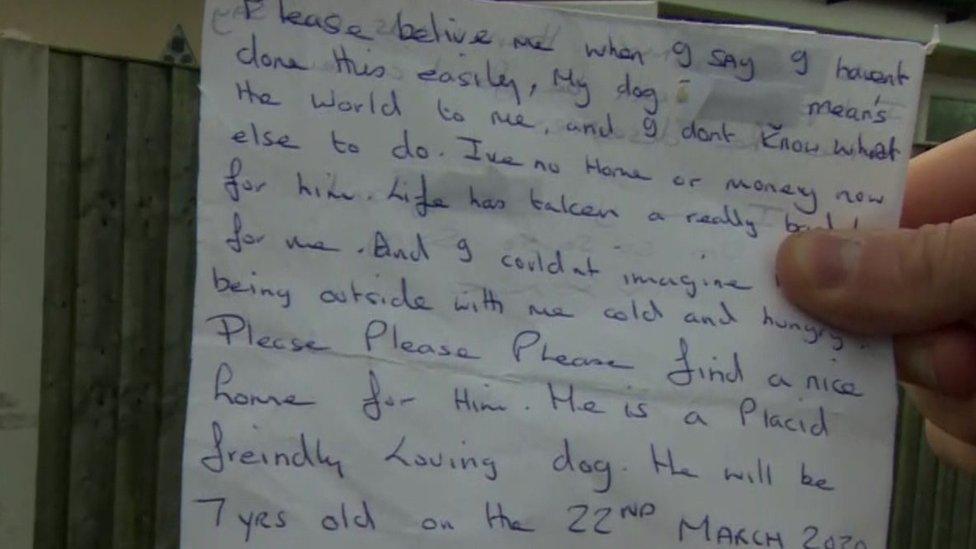 Please belive me when I say I havent
done this easily, My dog means
the world to me, and I dont know what
else to do. Ive no Home or money now
for him. Life has taken a really
for me. And I couldnt imagine
being outside with me cold and hungry.
Please Please Please find a nice
home for Him. He is a Placid
freindly Loving dog. He will be
7 yrs old on the 22ND MARCH 2020